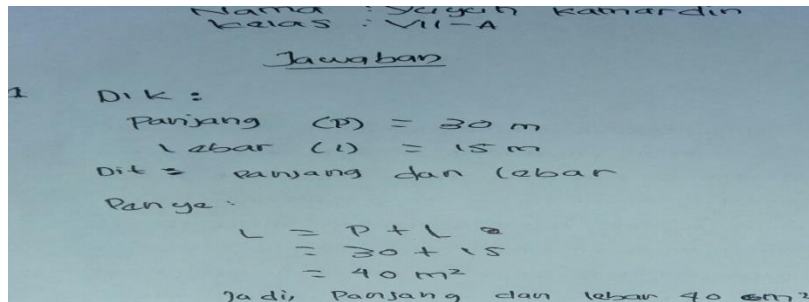 Nama : Kamardin
Kelas : VII-A
Jawaban
1 Dik :
Panjang (P) = 30 m
Lebar (l) = 15 m
Dit = Panjang dan lebar
Penye :
L = P + L
= 30 + 15
= 40 m²
Jadi, Panjang dan lebar 40 m²